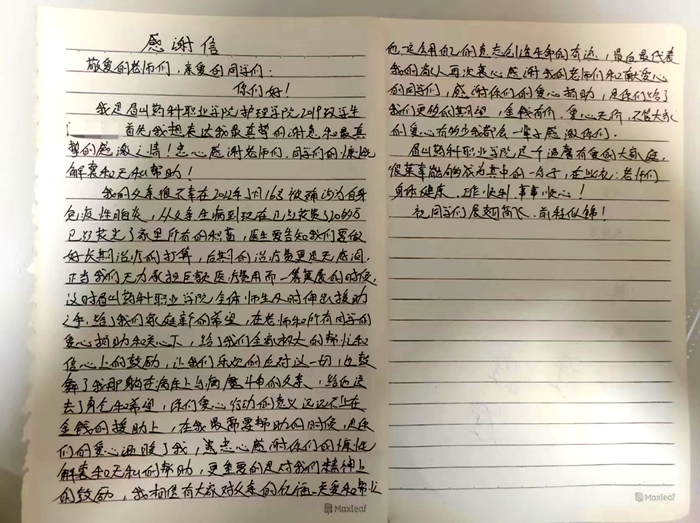 感谢信
敬爱的老师们，亲爱的同学们：
你们好！
我是眉山药科职业学院护理学院2019级学生
首先我想表达我最真挚的谢意和最真
挚的感激之情！衷心感谢老师们、同学们的慷慨
解囊和无私帮助！
我的父亲很不幸在2022年3月16号被确诊为自身
免疫性脑炎，从父亲生病到现在已经花费了20多万
已经花光了家里所有的积蓄，医生要告知我们要做
好长期治疗的打算，后期的治疗费更是无底洞，
正当我们无力承担巨额医疗费用而一筹莫展的时候，
这时眉山药科职业学院全体师生及时伸出援助
之手，给了我们家庭新的希望，在老师和所有同学的
爱心捐助和关心下，给了我们全家极大的帮忙和
信心上的鼓励，让我们乐观的应对这一切，也鼓
舞了我那躺在病床上与病魔斗争的父亲，给他送
去了勇气和希望，你们爱心行动的意义远远不止在
金钱的援助上，在我最需要帮助的时候，是你
们的爱心温暖了我，衷心感谢你们的慷慨
解囊和无私的帮助，更重要的是对我们精神上
的鼓励，我相信有大家对父亲的
他一定会用自己的意志创造生命的奇迹，最后我代表
我的家人再次衷心感谢我的老师们和献爱心
的同学们，感谢你们的爱心捐助，是你们给了
我们更多的期望，金钱有价，爱心无价，不管大家
的爱心有多少我都会一辈子感谢你们。
眉山药科职业学院是个温馨有爱的大家庭，
很荣幸能够成为其中的一份子，在此祝：老师们
身体健康、工作快乐、事事顺心！
祝同学们展翅高飞、前程似锦！
Maxleaf
Maxleaf